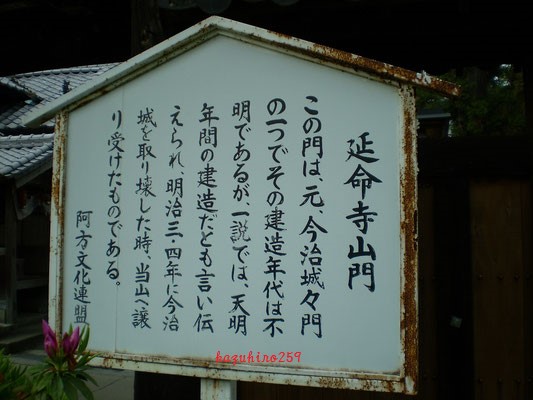 延命寺山門
この門は、元、今治城々門
の一つでその建造年代は不
明であるが、一説では、天明
年間の建造だとも言い伝
えられ、明治三・四年に今治
城を取り壊した時、当山へ譲
り受けたものである。
阿方文化連盟
kazuhiro259